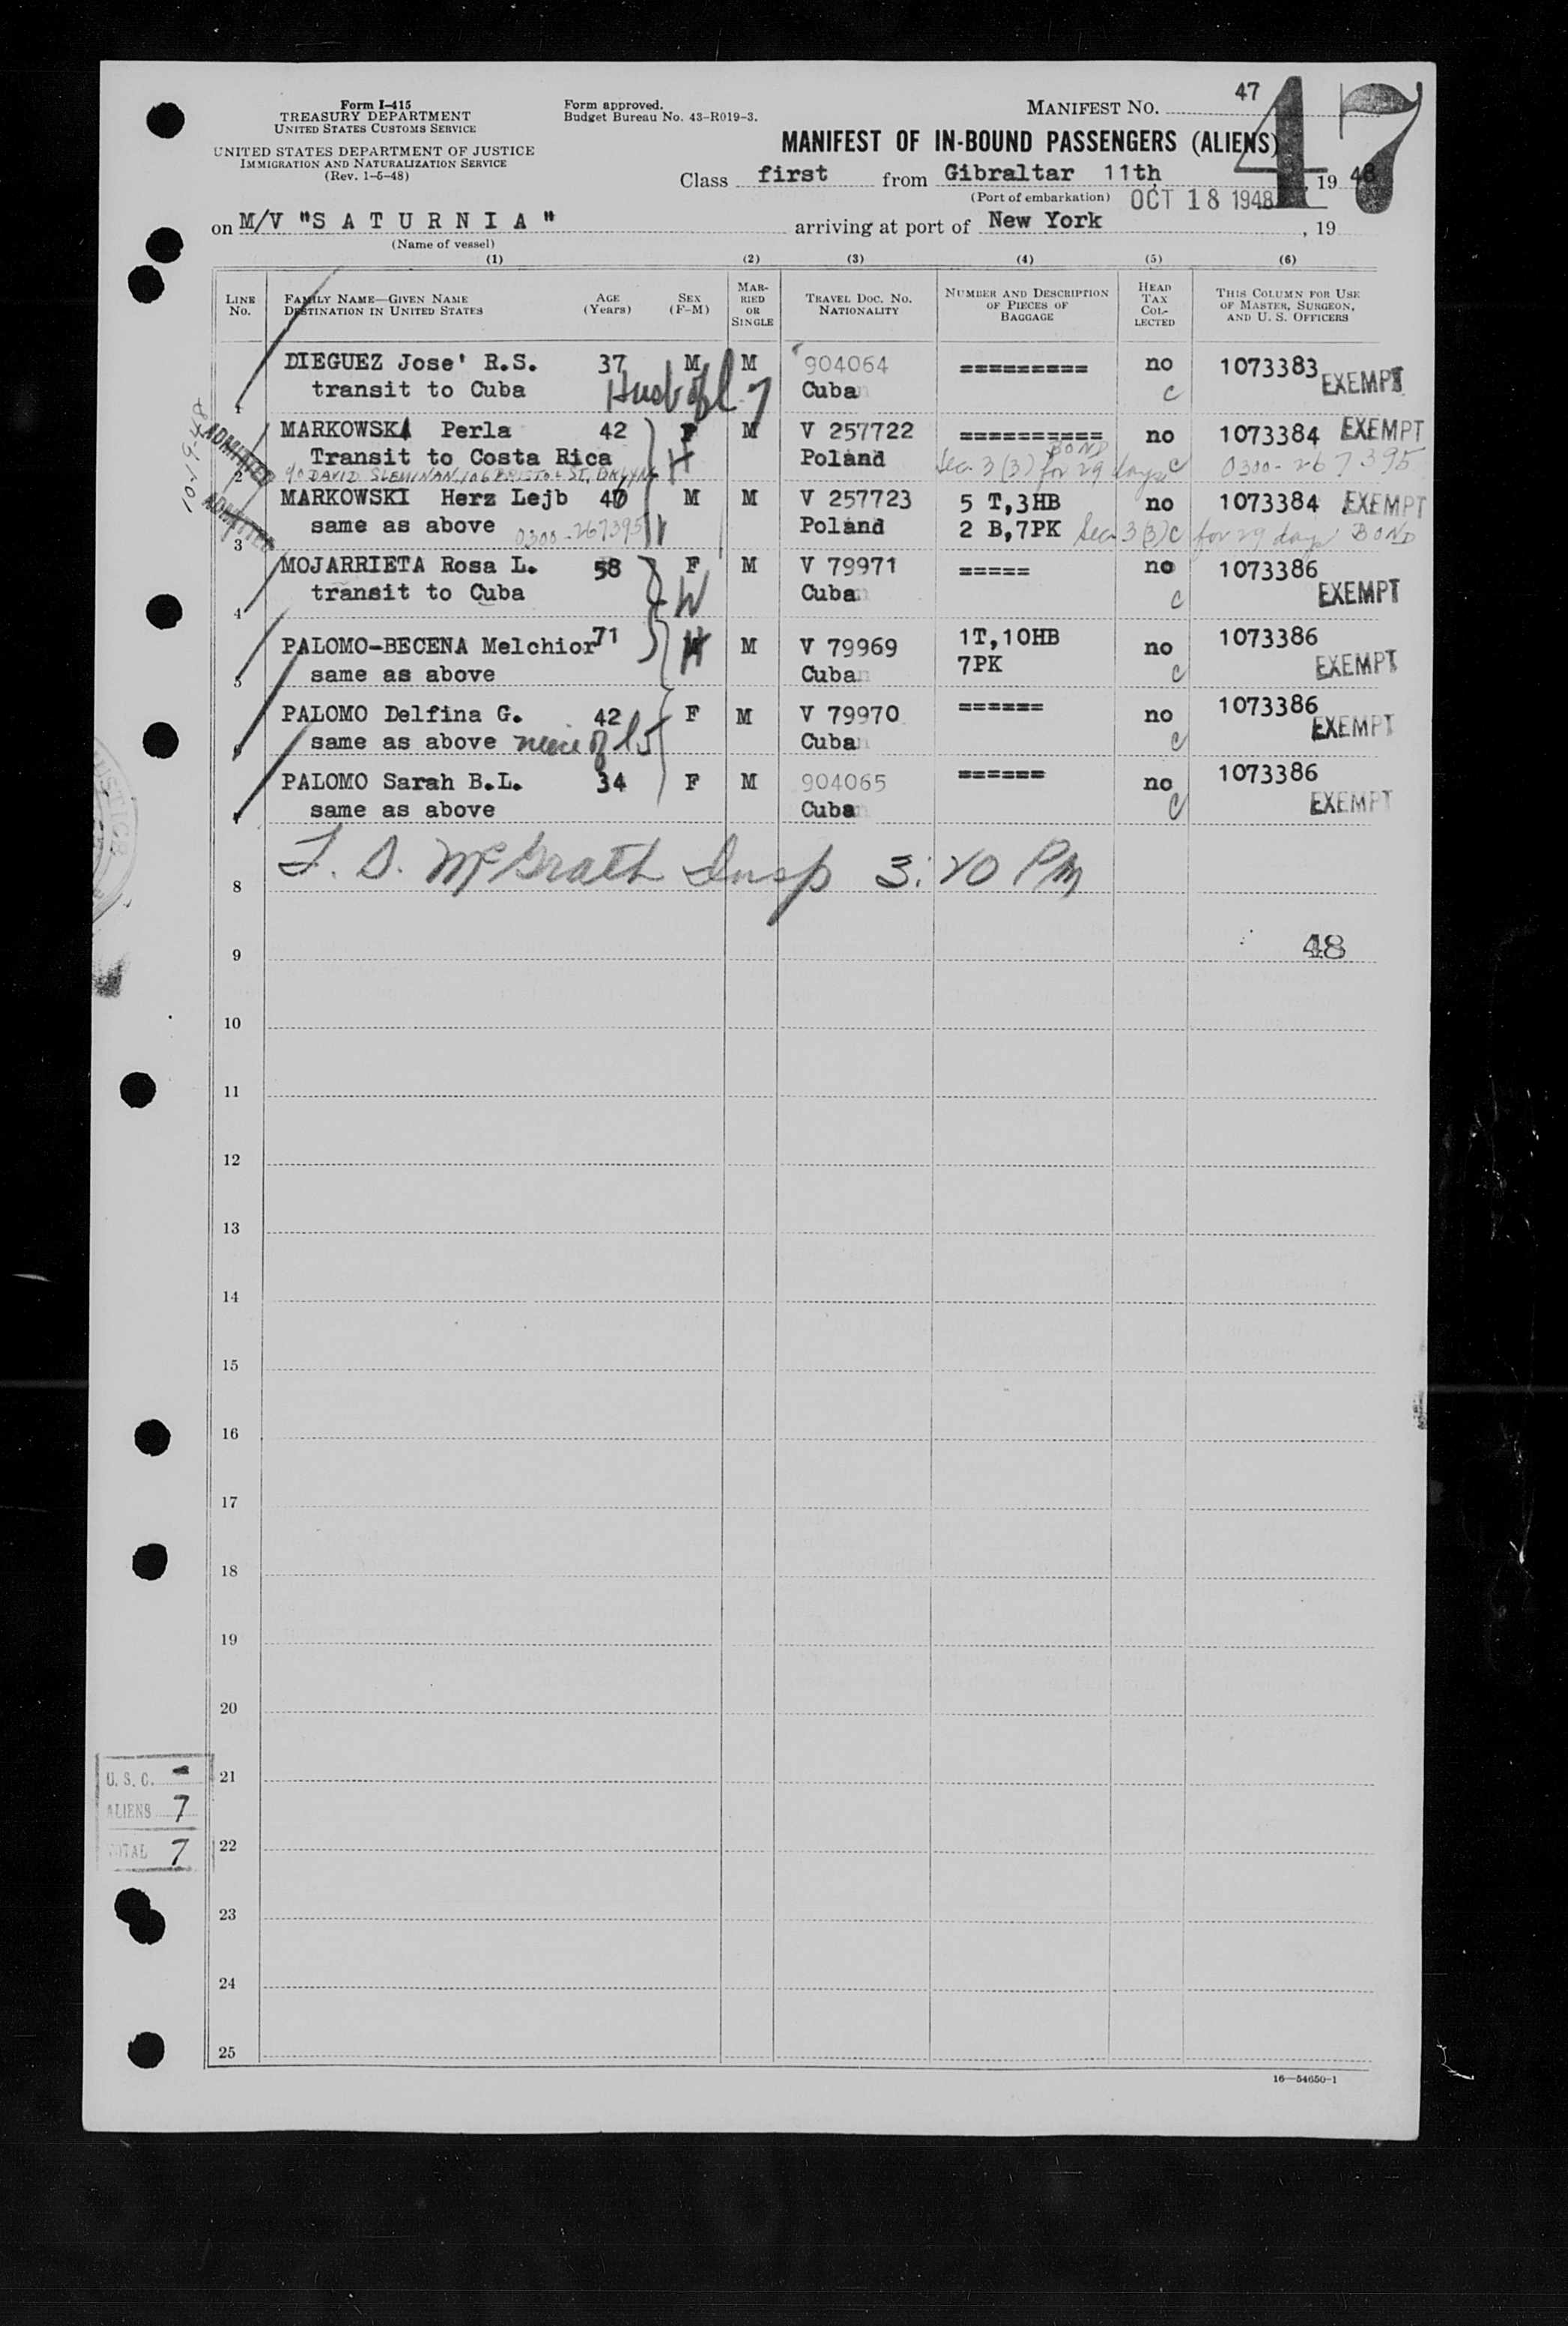 Form I-415
TREASURY DEPARTMENT
UNITED STATES CUSTOMS SERVICE
UNITED STATES DEPARTMENT OF JUSTICE
IMMIGRATION AND NATURALIZATION SERVICE
(Rev. 1-5-48)
Form approved.
Budget Bureau No. 43-R019-3.
MANIFEST NO. 47
47
MANIFEST OF IN-BOUND PASSENGERS (ALIENS)
Class first from Gibraltar 11th, 19 48
(Port of embarkation) OCT 18 1948
on M/V "S A T U R N I A" arriving at port of New York, 19
(Name of vessel)
(1) (2) (3) (4) (5) (6)
LINE No. FAMILY NAME—GIVEN NAME DESTINATION IN UNITED STATES AGE (Years) SEX (F-M) MARRIED OR SINGLE TRAVEL DOC. NO. NATIONALITY NUMBER AND DESCRIPTION OF PIECES OF BAGGAGE HEAD TAX COLLECTED THIS COLUMN FOR USE OF MASTER, SURGEON, AND U. S. OFFICERS
DIEGUEZ Jose' R.S. 37 M M 904064 ========= no 1073383 EXEMPT
1 transit to Cuba Husb of l 7 Cuban c
10-19-48
ADMITTED
MARKOWSKA Perla 42 F M V 257722 ========== no 1073384 EXEMPT
Transit to Costa Rica H Poland Sec. 3 (3) for 29 days BOND c 0300-267395
2 c/o DAVID BRISTOL ST, BKLYN
ADMITTED
MARKOWSKI Herz Lejb 46 M M V 257723 5 T,3HB no 1073384 EXEMPT
3 same as above 0300-267395 Poland 2 B,7PK Sec 3 (3) c for 29 days BOND
MOJARRIETA Rosa L. 58 F M V 79971 ===== no 1073386
4 transit to Cuba W Cuban c EXEMPT
PALOMO-BECENA Melchior 71 M V 79969 1T,10HB no 1073386
5 same as above Cuban 7PK c EXEMPT
PALOMO Delfina G. 42 F M V 79970 ====== no 1073386
6 same as above niece of l 5 Cuban c EXEMPT
PALOMO Sarah B.L. 34 F M 904065 ====== no 1073386
7 same as above Cuban c EXEMPT
8 McGrath Insp 3:20 PM
9 48
10
11
12
13
14
15
16
17
18
19
20
21
22
23
24
25
U. S. C. -
ALIENS 7
TOTAL 7
16—54650-1